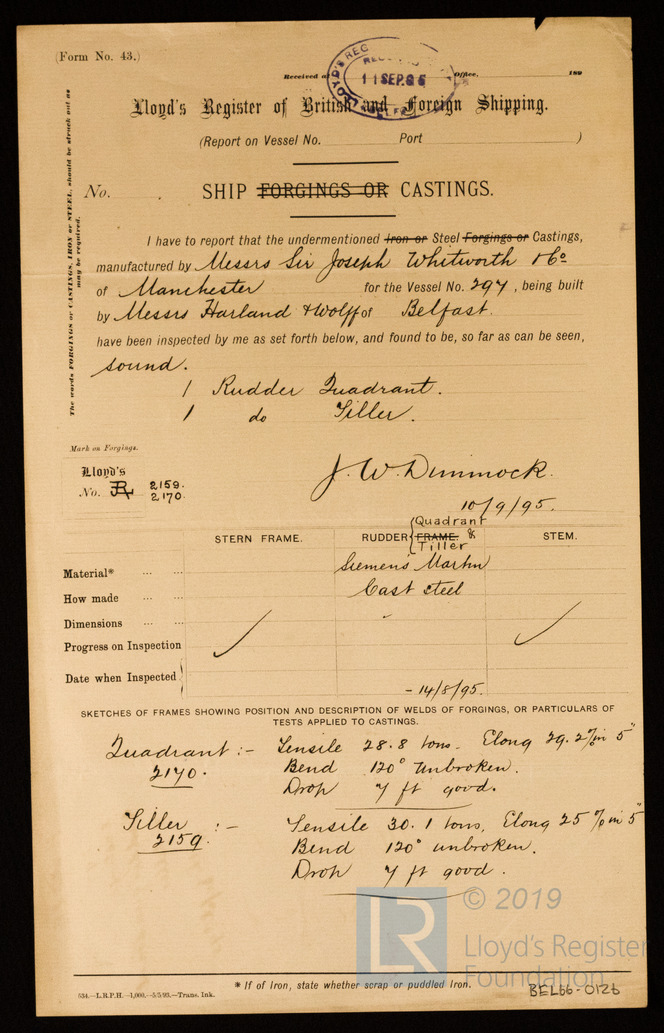 (Form No. 43.)
Received at Office, 189
LLOYD'S REG
11 SEP. 95
Lloyd's Register of British and Foreign Shipping.
(Report on Vessel No. Port )
No. SHIP FORGINGS OR CASTINGS.
The words FORGINGS or CASTINGS, IRON or STEEL, should be struck out as
may be required.
I have to report that the undermentioned Iron or Steel Forgings or Castings,
manufactured by Messrs Sir Joseph Whitworth & Co
of Manchester for the Vessel No. 297, being built
by Messrs Harland & Wolff of Belfast.
have been inspected by me as set forth below, and found to be, so far as can be seen,
sound.
1 Rudder Quadrant.
1 do Tiller.
Mark on Forgings.
Lloyd's
No. 2159.
2170.
J. W. Dimmock.
10/9/95.
STERN FRAME. RUDDER FRAME. Quadrant & Tiller STEM.
Material* Siemens Martin
How made Cast steel
Dimensions
Progress on Inspection
Date when Inspected - 14/8/95.
SKETCHES OF FRAMES SHOWING POSITION AND DESCRIPTION OF WELDS OF FORGINGS, OR PARTICULARS OF
TESTS APPLIED TO CASTINGS.
Quadrant :- Tensile 28.8 tons. Elong 29.2% in 5"
2170. Bend 120° unbroken.
Drop 7 ft good.
Tiller :- Tensile 30.1 tons, Elong 25 % in 5"
2159. Bend 120° unbroken.
Drop 7 ft good.
LR
© 2019
Lloyd's Register
Foundation
* If of Iron, state whether scrap or puddled Iron.
534.—L.R.P.H.—1,000.—5/5/93.—Trans. Ink.
BEL66-0126